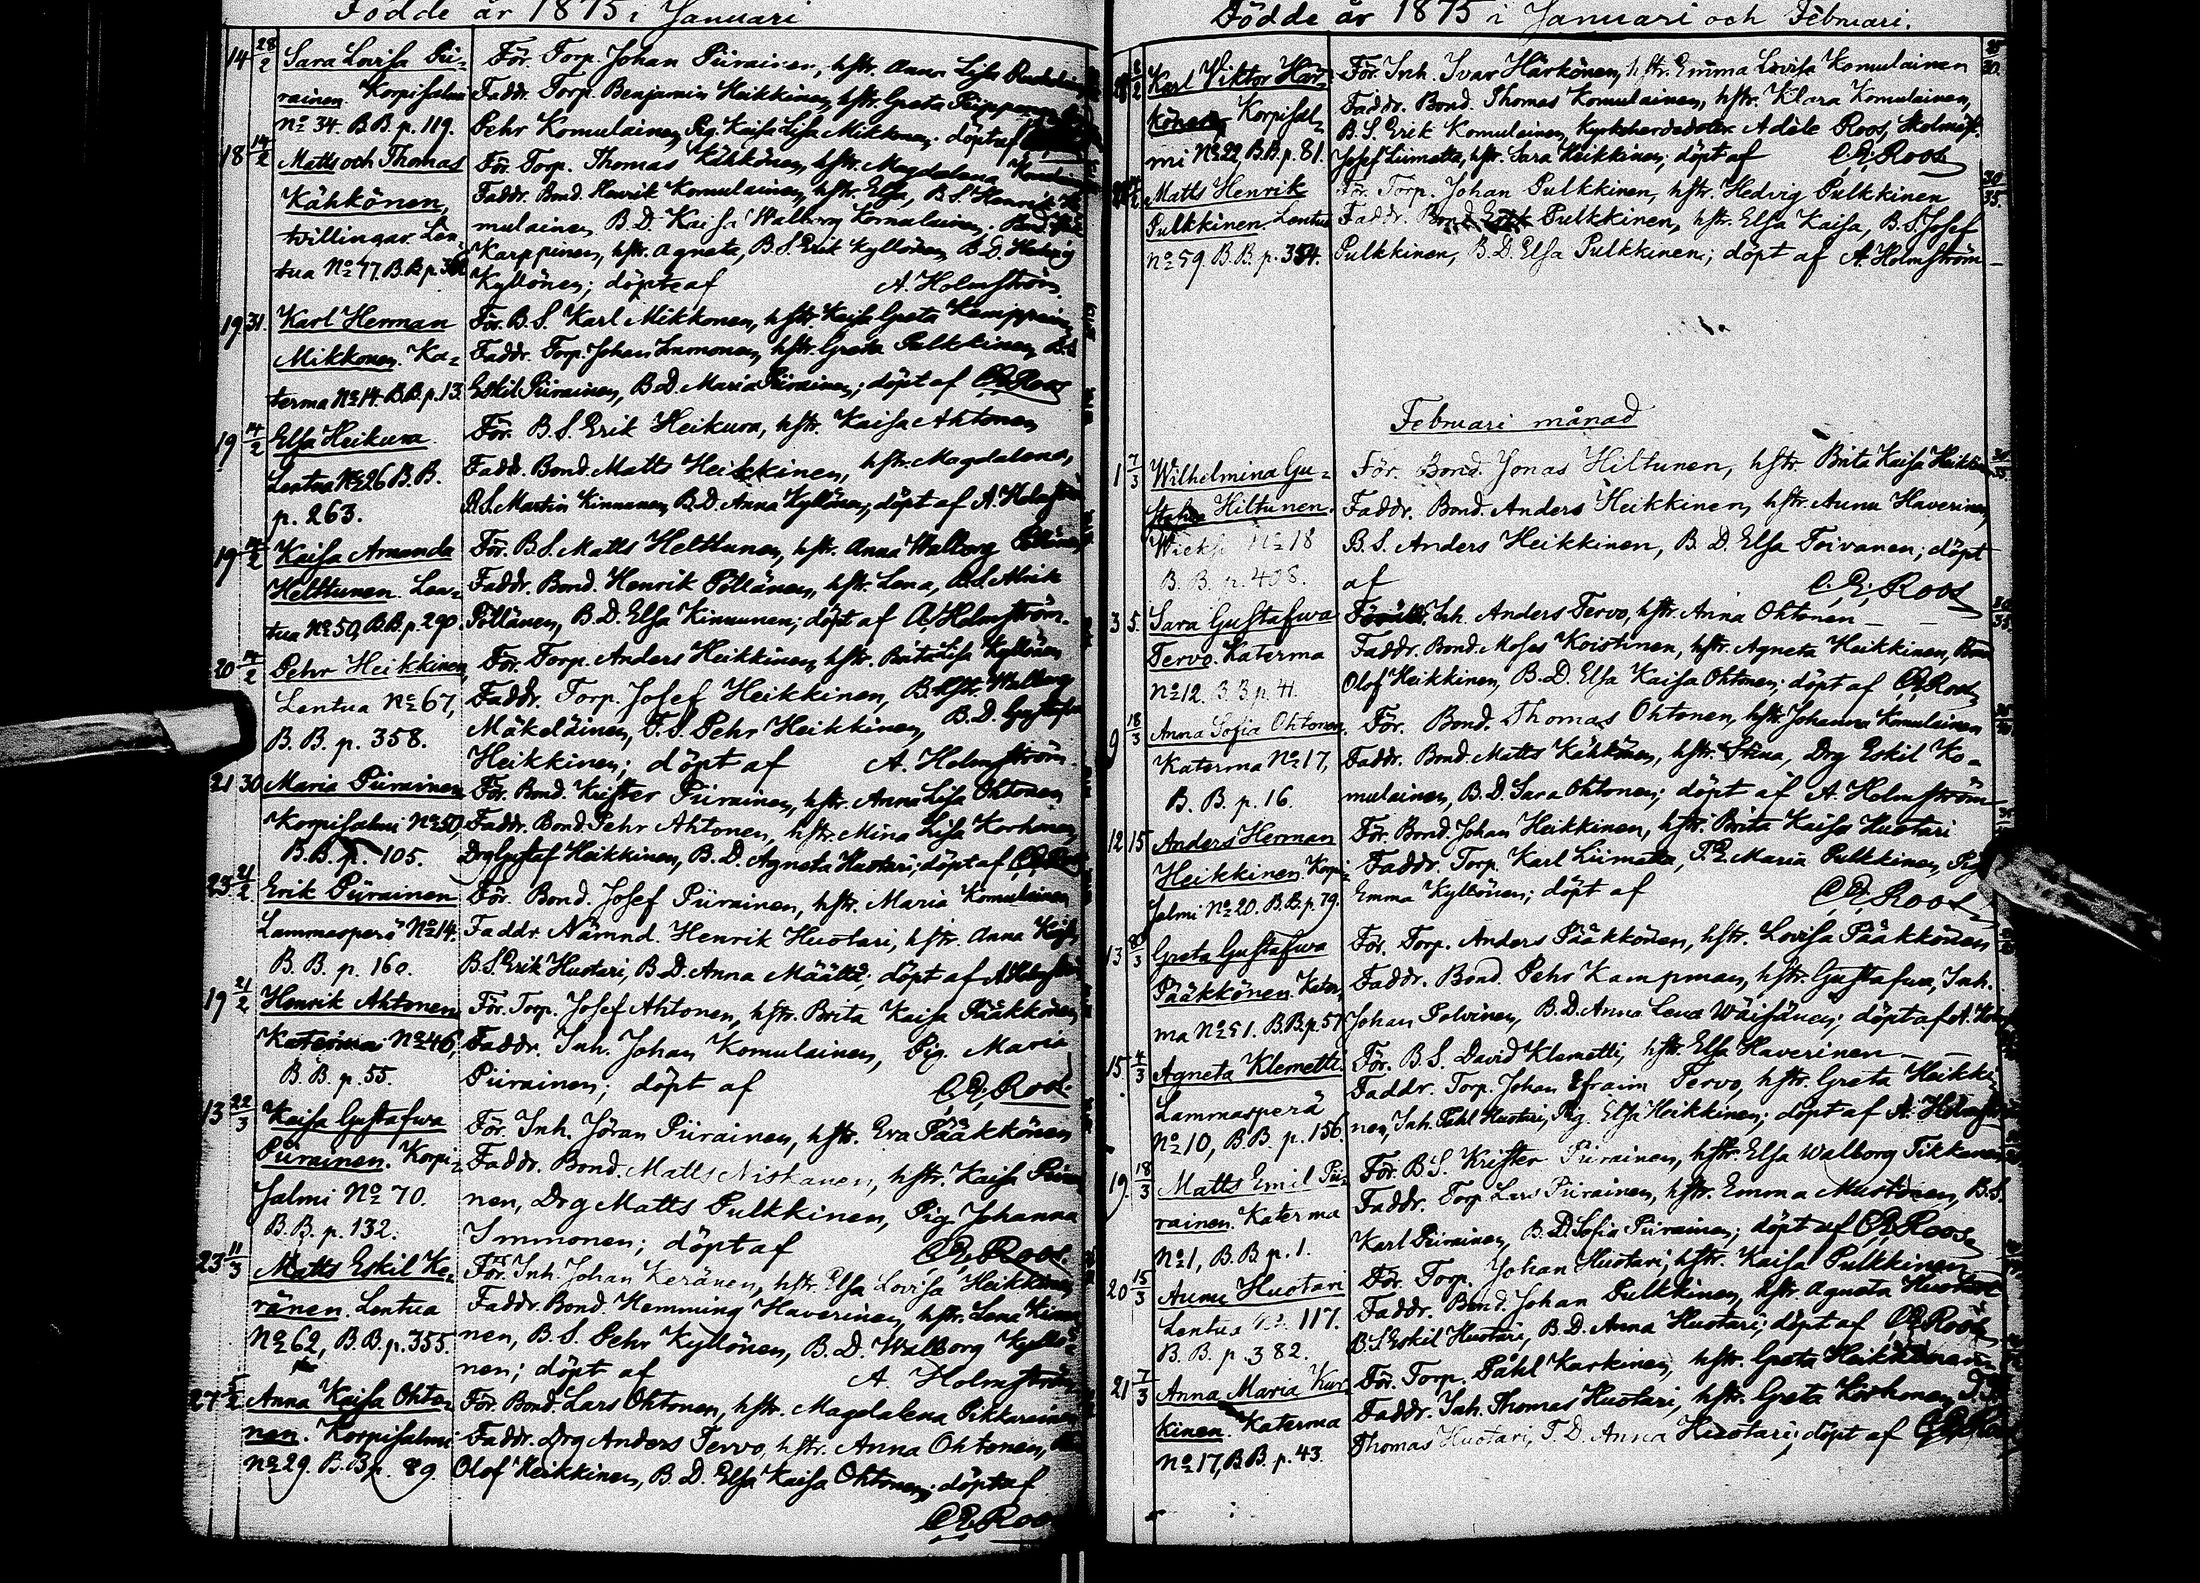 Födde år 1875 i Januari
14 28/2 Sara Lovisa Pii-
rainen. Korpisalmi
No 34. B.B. p. 119.
För. Torp. Johan Piirainen, hstr. Anna Lisa
Faddr. Torp. Benjamin Heikkinen, hstr. Greta
Pehr Komulainen, Pig. Kaisa Lisa Mikkonen; döpt af
18 14/2 Matts och Thomas
Kähkönen,
tvillingar. Len-
tua No 77 B.B. p.
För. Torp. Thomas Kähkönen, hstr. Magdalena
Faddr. Bond. Henrik Komulainen, hstr. Elsa, B.S. Henrik Ko-
mulainen, B.D. Kaisa Walborg Komulainen. Bond.
Karppinen, hstr. Agneta, B.S. Erik Kyllönen, B.D. Hedvig
Kyllönen; döpte af A. Holmström.
19 31. Karl Herman
Mikkonen. Ka-
terma No 14 B.B. p. 13.
För. B.S. Karl Mikkonen, hstr. Kaisa Greta
Faddr. Torp. Johan Immonen, hstr. Greta Pulkkinen, B.S.
Eskil Piirainen, B.D. Maria Piirainen; döpt af C. E. Roos
19 14/2 Elsa Heikura
Lentua No 26 B.B.
p. 263.
För. B.S. Erik Heikura, hstr. Kaisa Ahtonen
Faddr. Bond. Matts Heikkinen, hstr. Magdalena,
B.S. Martin Kinnunen, B.D. Anna Kyllönen; döpt af A. Holmström
19 14/2 Kaisa Amanda
Helttunen. Len-
tua No 50, B.B. p. 290.
För. B.S. Matts Helttunen, hstr. Anna Walborg Pöllänen
Faddr. Bond. Henrik Pöllänen, hstr. Lena, B.S. Alrik
Pöllänen, B.D. Elsa Kinnunen; döpt af A. Holmström.
20 14/2 Pehr Heikkinen,
Lentua No 67,
B. B. p. 358.
För. Torp. Anders Heikkinen, hstr. Brita Lisa Kyllönen
Faddr. Torp. Josef Heikkinen, B. hstr. Walborg
Mäkeläinen, T.S. Pehr Heikkinen, B.D. Gustafva
Heikkinen; döpt af A. Holmström.
21 30 Maria Piirainen
Korpisalmi No 50,
B. B. p. 105.
För. Bond. Krister Piirainen, hstr. Anna Lisa Ohtonen
Faddr. Bond. Pehr Ahtonen, hstr. Mina Lisa Korhonen,
Drg Gustaf Heikkinen, B. D. Agneta Huotari; döpt af C. E. Roos
23 21/2 Erik Piirainen
Lammasperä No 14.
B. B. p. 160.
För. Bond. Josef Piirainen, hstr. Maria Komulainen
Faddr. Nämnd. Henrik Huotari, hstr. Anna Kaisa
B.S. Erik Huotari, B.D. Anna Määttä; döpt af A. Holmström
19 21/2 Henrik Ahtonen
Katerma No 46,
B. B. p. 55.
För. Torp. Josef Ahtonen, hstr. Brita Kaisa Pääkkönen
Faddr. Inh. Johan Komulainen, Pig. Maria
Piirainen; döpt af C. E. Roos.
13 22/3 Kaisa Gustafwa
Piirainen. Korpi-
salmi No 70.
B. B. p. 132.
För. Inh. Jöran Piirainen, hstr. Eva Pääkkönen
Faddr. Bond. Matts Niskanen, hstr. Kaisa
nen, Drg Matts Pulkkinen, Pig Johanna
Immonen; döpt af C. E. Roos.
23 11/3 Matts Eskil Ke-
ränen. Lentua
No 62, B. B. p. 355.
För. Inh. Johan Keränen, hstr. Elsa Lovisa Heikkinen
Faddr. Bond. Hemming Haverinen, hstr. Lena Kinnu-
nen, B. S. Pehr Kyllönen, B. D. Walborg Kyllö-
nen; döpt af A. Holmström
27 5/2 Anna Kaisa Ohto-
nen. Korpisalmi
No 29. B. B. p. 89.
För. Bond. Lars Ohtonen, hstr. Magdalena Pikkarainen
Faddr. Drg Anders Tervo, hstr. Anna Ohtonen,
Olof Heikkinen, B. D. Elsa Kaisa Ohtonen; döpt af
C. E. Roos
Födde år 1875 i Januari och Februari.
Karl Viktor Här-
könen. Korpisal-
mi No 22, B. B. p. 81.
För. Inh. Ivar Härkönen, hstr. Emma Lovisa Komulainen
Faddr. Bond. Thomas Komulainen, hstr. Klara Komulainen,
B. S. Erik Komulainen, Kyrkoherdedotr. Adèle Roos, Skolmäst.
Josef Liimatta, hstr. Sara Heikkinen; döpt af C. E. Roos
Matts Henrik
Pulkkinen. Lentua
No 59 B. B. p. 354.
För. Torp. Johan Pulkkinen, hstr. Hedvig Pulkkinen
Faddr. Bond. Erik Pulkkinen, hstr. Elsa Kaisa, B. S. Josef
Pulkkinen, B. D. Elsa Pulkkinen; döpt af A. Holmström
Februari månad
1 7/3 Wilhelmina Gu-
stafva Hiltunen.
Wieksi No 18
B. B. p. 408.
För. Bond. Jonas Hiltunen, hstr. Brita Kaisa Heikkinen
Faddr. Bond. Anders Heikkinen, hstr. Anna Haverinen,
B. S. Anders Heikkinen, B. D. Elsa Toivanen; döpt
af C. E. Roos
3 5. Sara Gustafwa
Tervo. Katerma
No 12. B. B. p. 41.
Inh. Anders Tervo, hstr. Anna Ohtonen
Faddr. Bond. Moses Koistinen, hstr. Agneta Heikkinen, Bond.
Olof Heikkinen, B. D. Elsa Kaisa Ohtonen; döpt af C. E. Roos
9 18/3 Anna Sofia Ohtonen.
Katerma No 17,
B. B. p. 16.
För. Bond. Thomas Ohtonen, hstr. Johanna Komulainen
Faddr. Bond. Matts Kähkönen, hstr. Stina, Drg Eskil Ko-
mulainen, B. D. Sara Ohtonen; döpt af A. Holmström
12 15 Anders Herman
Heikkinen. Korpi-
salmi No 20. B. B. p. 79.
För. Bond. Johan Heikkinen, hstr. Brita Kaisa Huotari
Faddr. Torp. Karl Liimatta, T. D. Maria Pulkkinen, Pig
Emma Kyllönen; döpt af C. E. Roos
13 8/3 Greta Gustafwa
Pääkkönen. Kater-
ma No 51. B. B. p. 57
För. Torp. Anders Pääkkönen, hstr. Lovisa Pääkkönen
Faddr. Bond. Pehr Kampman, hstr. Gustafwa, Inh.
Johan Polvinen, B. D. Anna Lena Wäisänen; döpt af A. Holmström
15 4/3 Agneta Klemetti.
Lammasperä
No 10, B. B. p. 156.
För. B. S. David Klemetti, hstr. Elsa Haverinen
Faddr. Torp. Johan Efraim Tervo, hstr. Greta Heikki-
nen, Inh. Pahl Huotari, Pig. Elsa Heikkinen; döpt af A. Holmström
19. 18/3 Matts Emil Pii-
rainen. Katerma
No 1, B. B. p. 1.
För. B. S. Krister Piirainen, hstr. Elsa Walborg Tikkanen
Faddr. Torp. Lars Piirainen, hstr. Emma Mustonen, B. S.
Karl Piirainen, B. D. Sofia Piirainen; döpt af C. E. Roos
20 15/3 Anna Huotari
Lentua No 117.
B. B. p. 382.
För. Torp. Johan Huotari, hstr. Kaisa Pulkkinen
Faddr. Bond. Johan Pulkkinen, hstr. Agneta Huotari
B. S. Eskil Huotari, B. D. Anna Huotari; döpt af C. E. Roos
21 7/3 Anna Maria Kar-
kinen. Katerma
No 17, B. B. p. 43.
För. Torp. Påhl Karkinen, hstr. Greta Heikkinen
Faddr. Inh. Thomas Huotari, hstr. Greta Korhonen,
Thomas Huotari, T. D. Anna Huotari; döpt af C. E. Roos